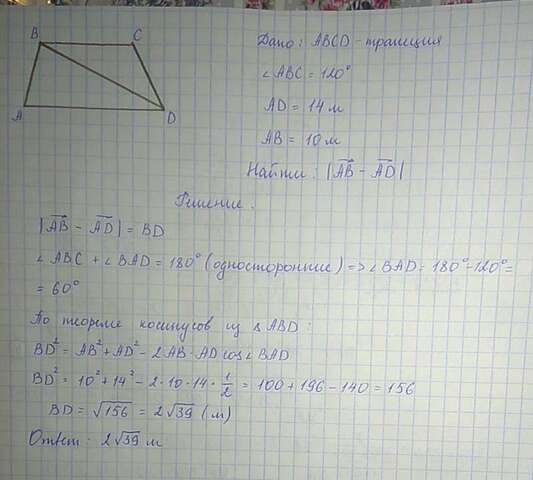 B C
A D
Дано: ABCD - трапеция
∠ABC = 120°
AD = 14 м
AB = 10 м
Найти: |AB⃗ - AD⃗|
Решение.
|AB⃗ - AD⃗| = BD
∠ABC + ∠BAD = 180° (односторонние) => ∠BAD = 180° - 120° =
= 60°
По теореме косинусов из △ABD:
BD² = AB² + AD² - 2AB · AD cos∠BAD
BD² = 10² + 14² - 2 · 10 · 14 · 1/2 = 100 + 196 - 140 = 156
BD = √156 = 2√39 (м)
Ответ: 2√39 м